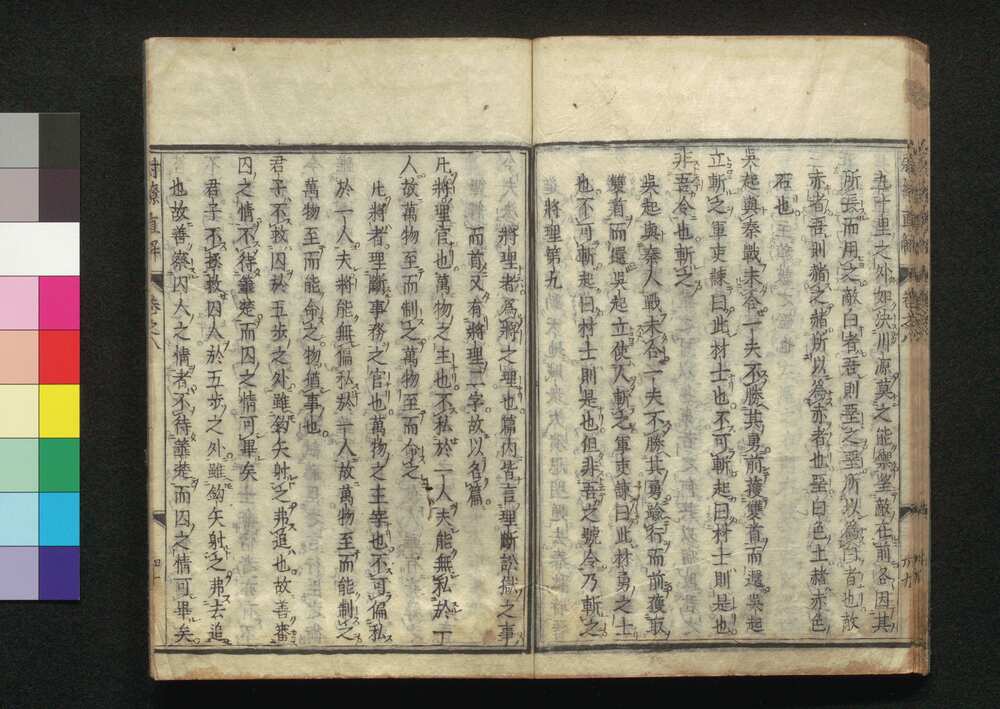 九十里之外如決川源莫之能禦望敵在前各因其
所長而用之敵白者吾則堊之堊所以為白者也敵
赤者吾則赭之赭所以為赤者也堊白色土赭赤色
石也
吳起與秦戰未合一夫不勝其勇前獲雙首而還吳起
立斬之軍吏諫曰此材士也不可斬起曰材士則是也
非吾令也斬之
吳起與秦人戰未合一夫不勝其勇踰行而前獲取
雙首而還吳起立使人斬之軍吏諫曰此材勇之士
也不可斬起曰材士則是也但非吾之號令乃斬之
將理第九
將理者為將之理也篇內皆言理斷訟獄之事
而首又有將理二字故以名篇
凡將理官也萬物之主也不私於一人夫能無私於一
人故萬物至而制之萬物至而命之
凡將者理斷事務之官也萬物之主宰也不可偏私
於一人夫將能無偏私於一人故萬物至而能制之
萬物至而能命之物猶事也
君子不救囚於五步之外雖鈎矢射之弗追也故善審
囚之情不待箠楚而囚之情可畢矣
君子不救囚人於五步之外雖鈎矢射之弗去追
也故善察囚人之情者不待箠楚而囚之情可畢矣
尉繚直解
卷之八
四十